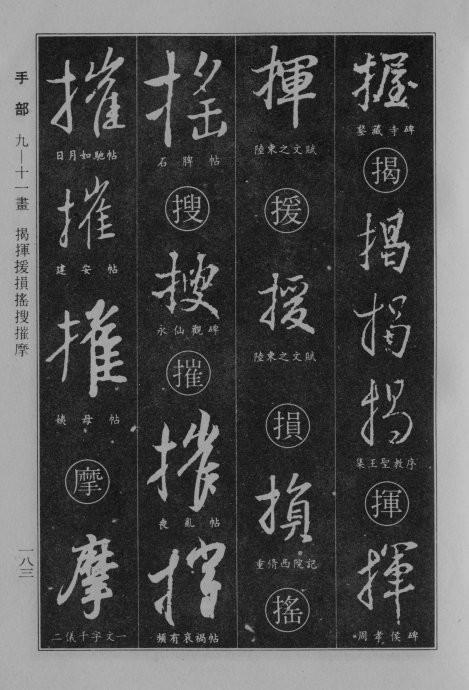 手部 九—十一畫 揭揮援損搖搜摧摩
一八三
握
鑿藏寺碑
揭
揭
揭
揭
集王聖教序
揮
揮
周孝侯碑
揮
陸東之文賦
援
援
陸東之文賦
損
損
重脩西院記
搖
搖
石牌帖
搜
搜
永仙觀碑
摧
摧
喪亂帖
摧
頻有哀禍帖
摧
日月如馳帖
摧
建安帖
摧
姨母帖
摩
摩
二儀千字文一